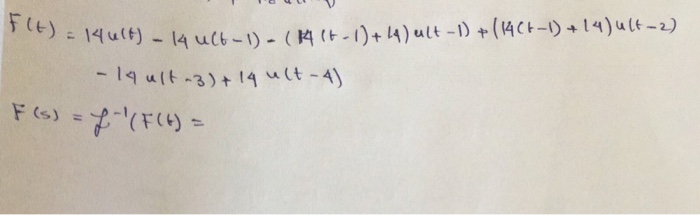 F(t) = 14u(t) - 14 u(t-1) - (14(t-1)+14) u(t-1) + (14(t-1)+14) u(t-2)
- 14 u(t-3) + 14 u(t-4)
F(s) = ℒ⁻¹(F(t) =